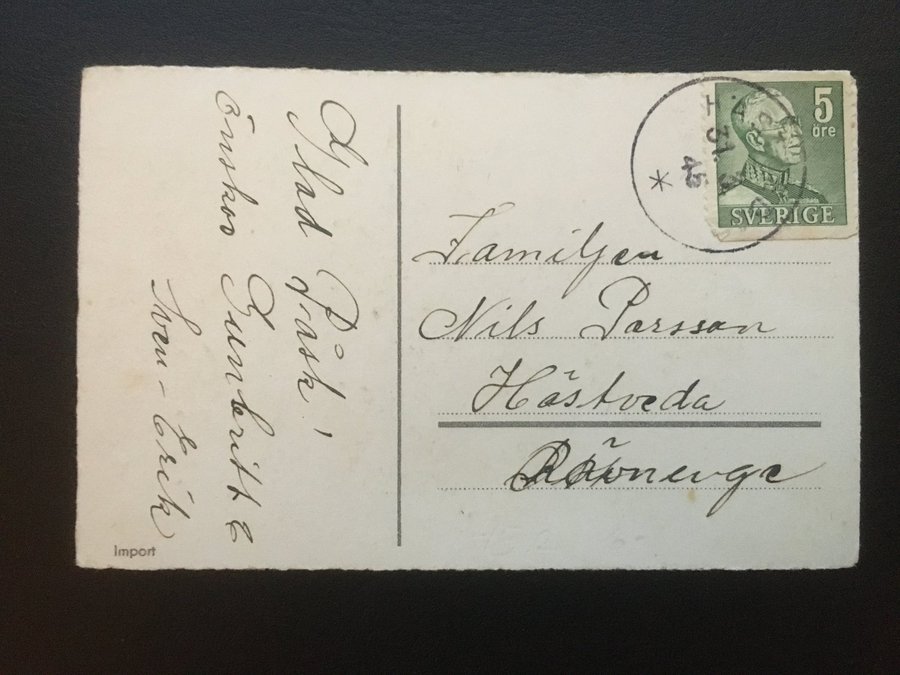 Glad Påsk!
önskar Gunbritt &
Sven-Erik
Import
5
öre
SVERIGE
45
Familjen
Nils Parsson
Hästveda